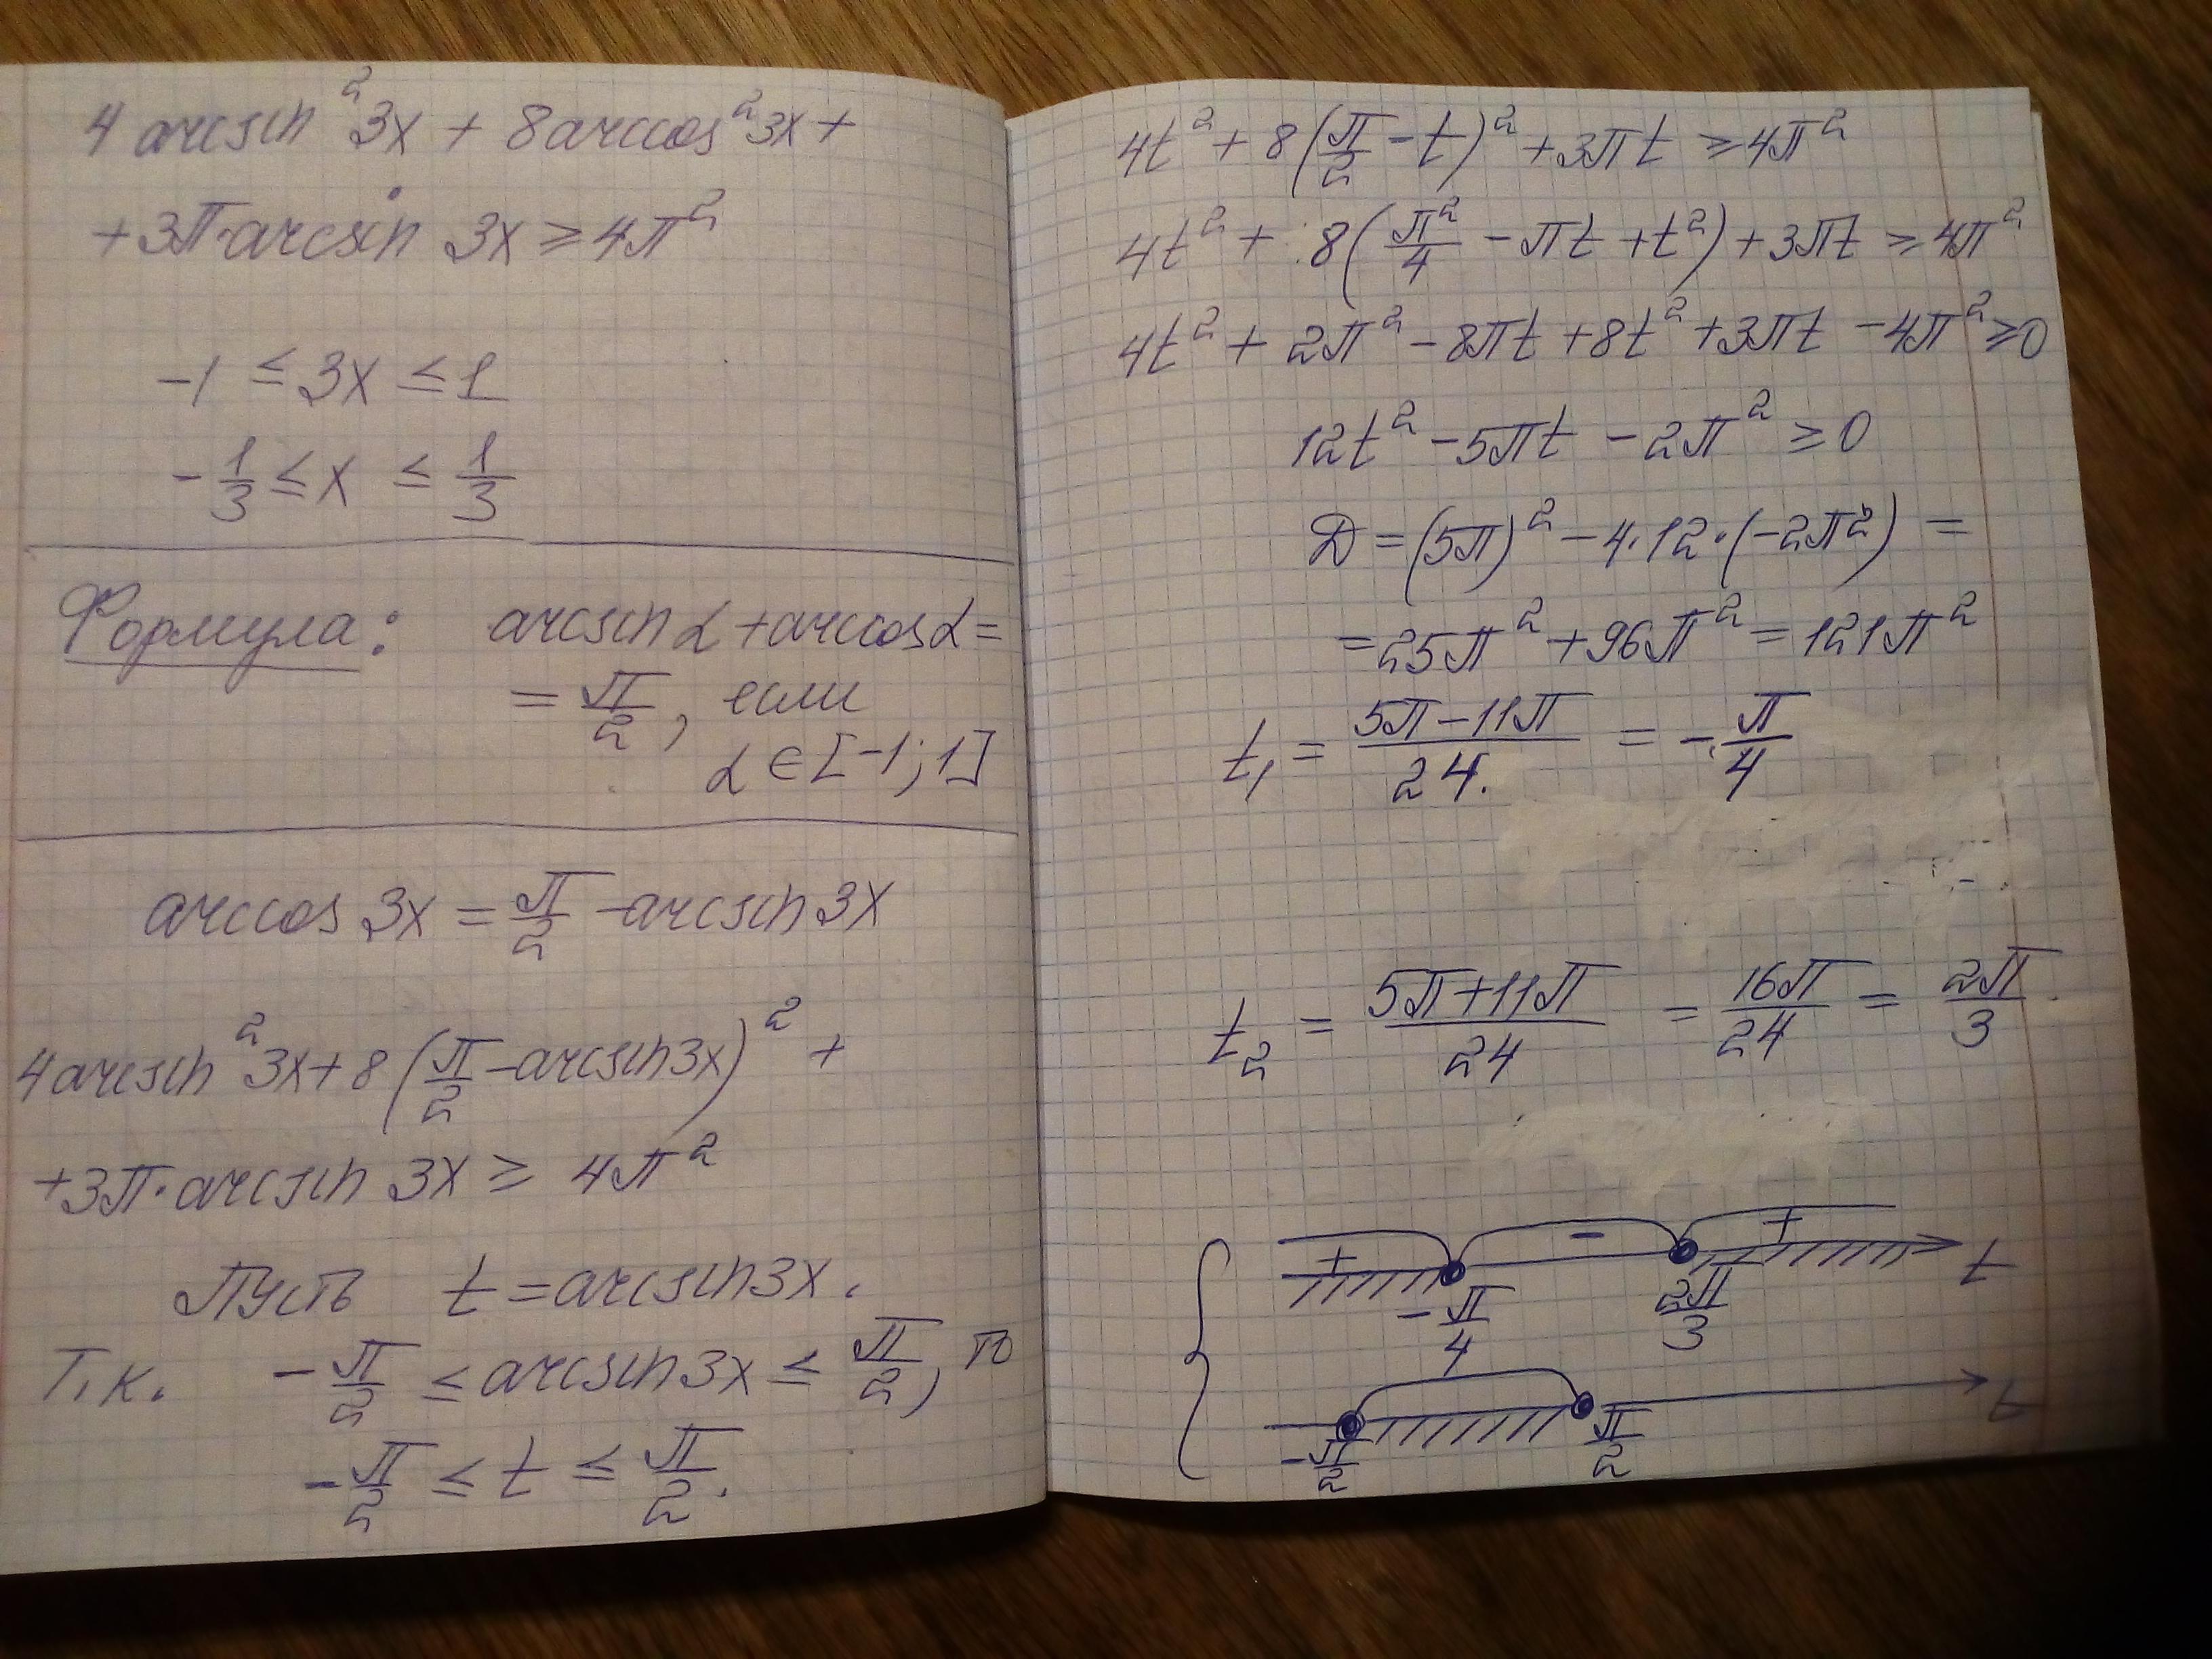 4 arcsin²3x + 8arccos²3x +
+3π·arcsin 3x ≥ 4π²
-1 ≤ 3x ≤ 1
-1/3 ≤ x ≤ 1/3
Формула: arcsin α + arccos α =
= π/2, если
α ∈ [-1; 1]
arccos 3x = π/2 - arcsin 3x
4arcsin²3x + 8(π/2 - arcsin3x)² +
+3π·arcsin 3x ≥ 4π²
Пусть t = arcsin3x.
Т.к. -π/2 ≤ arcsin3x ≤ π/2, то
-π/2 ≤ t ≤ π/2.
4t² + 8(π/2 - t)² + 3πt ≥ 4π²
4t² + 8(π²/4 - πt + t²) + 3πt ≥ 4π²
4t² + 2π² - 8πt + 8t² + 3πt - 4π² ≥ 0
12t² - 5πt - 2π² ≥ 0
D = (5π)² - 4·12·(-2π²) =
= 25π² + 96π² = 121π²
t₁ = (5π - 11π)/24. = -π/4
t₂ = (5π + 11π)/24 = 16π/24 = 2π/3.
+ - + t
-π/4 2π/3
t
-π/2 π/2